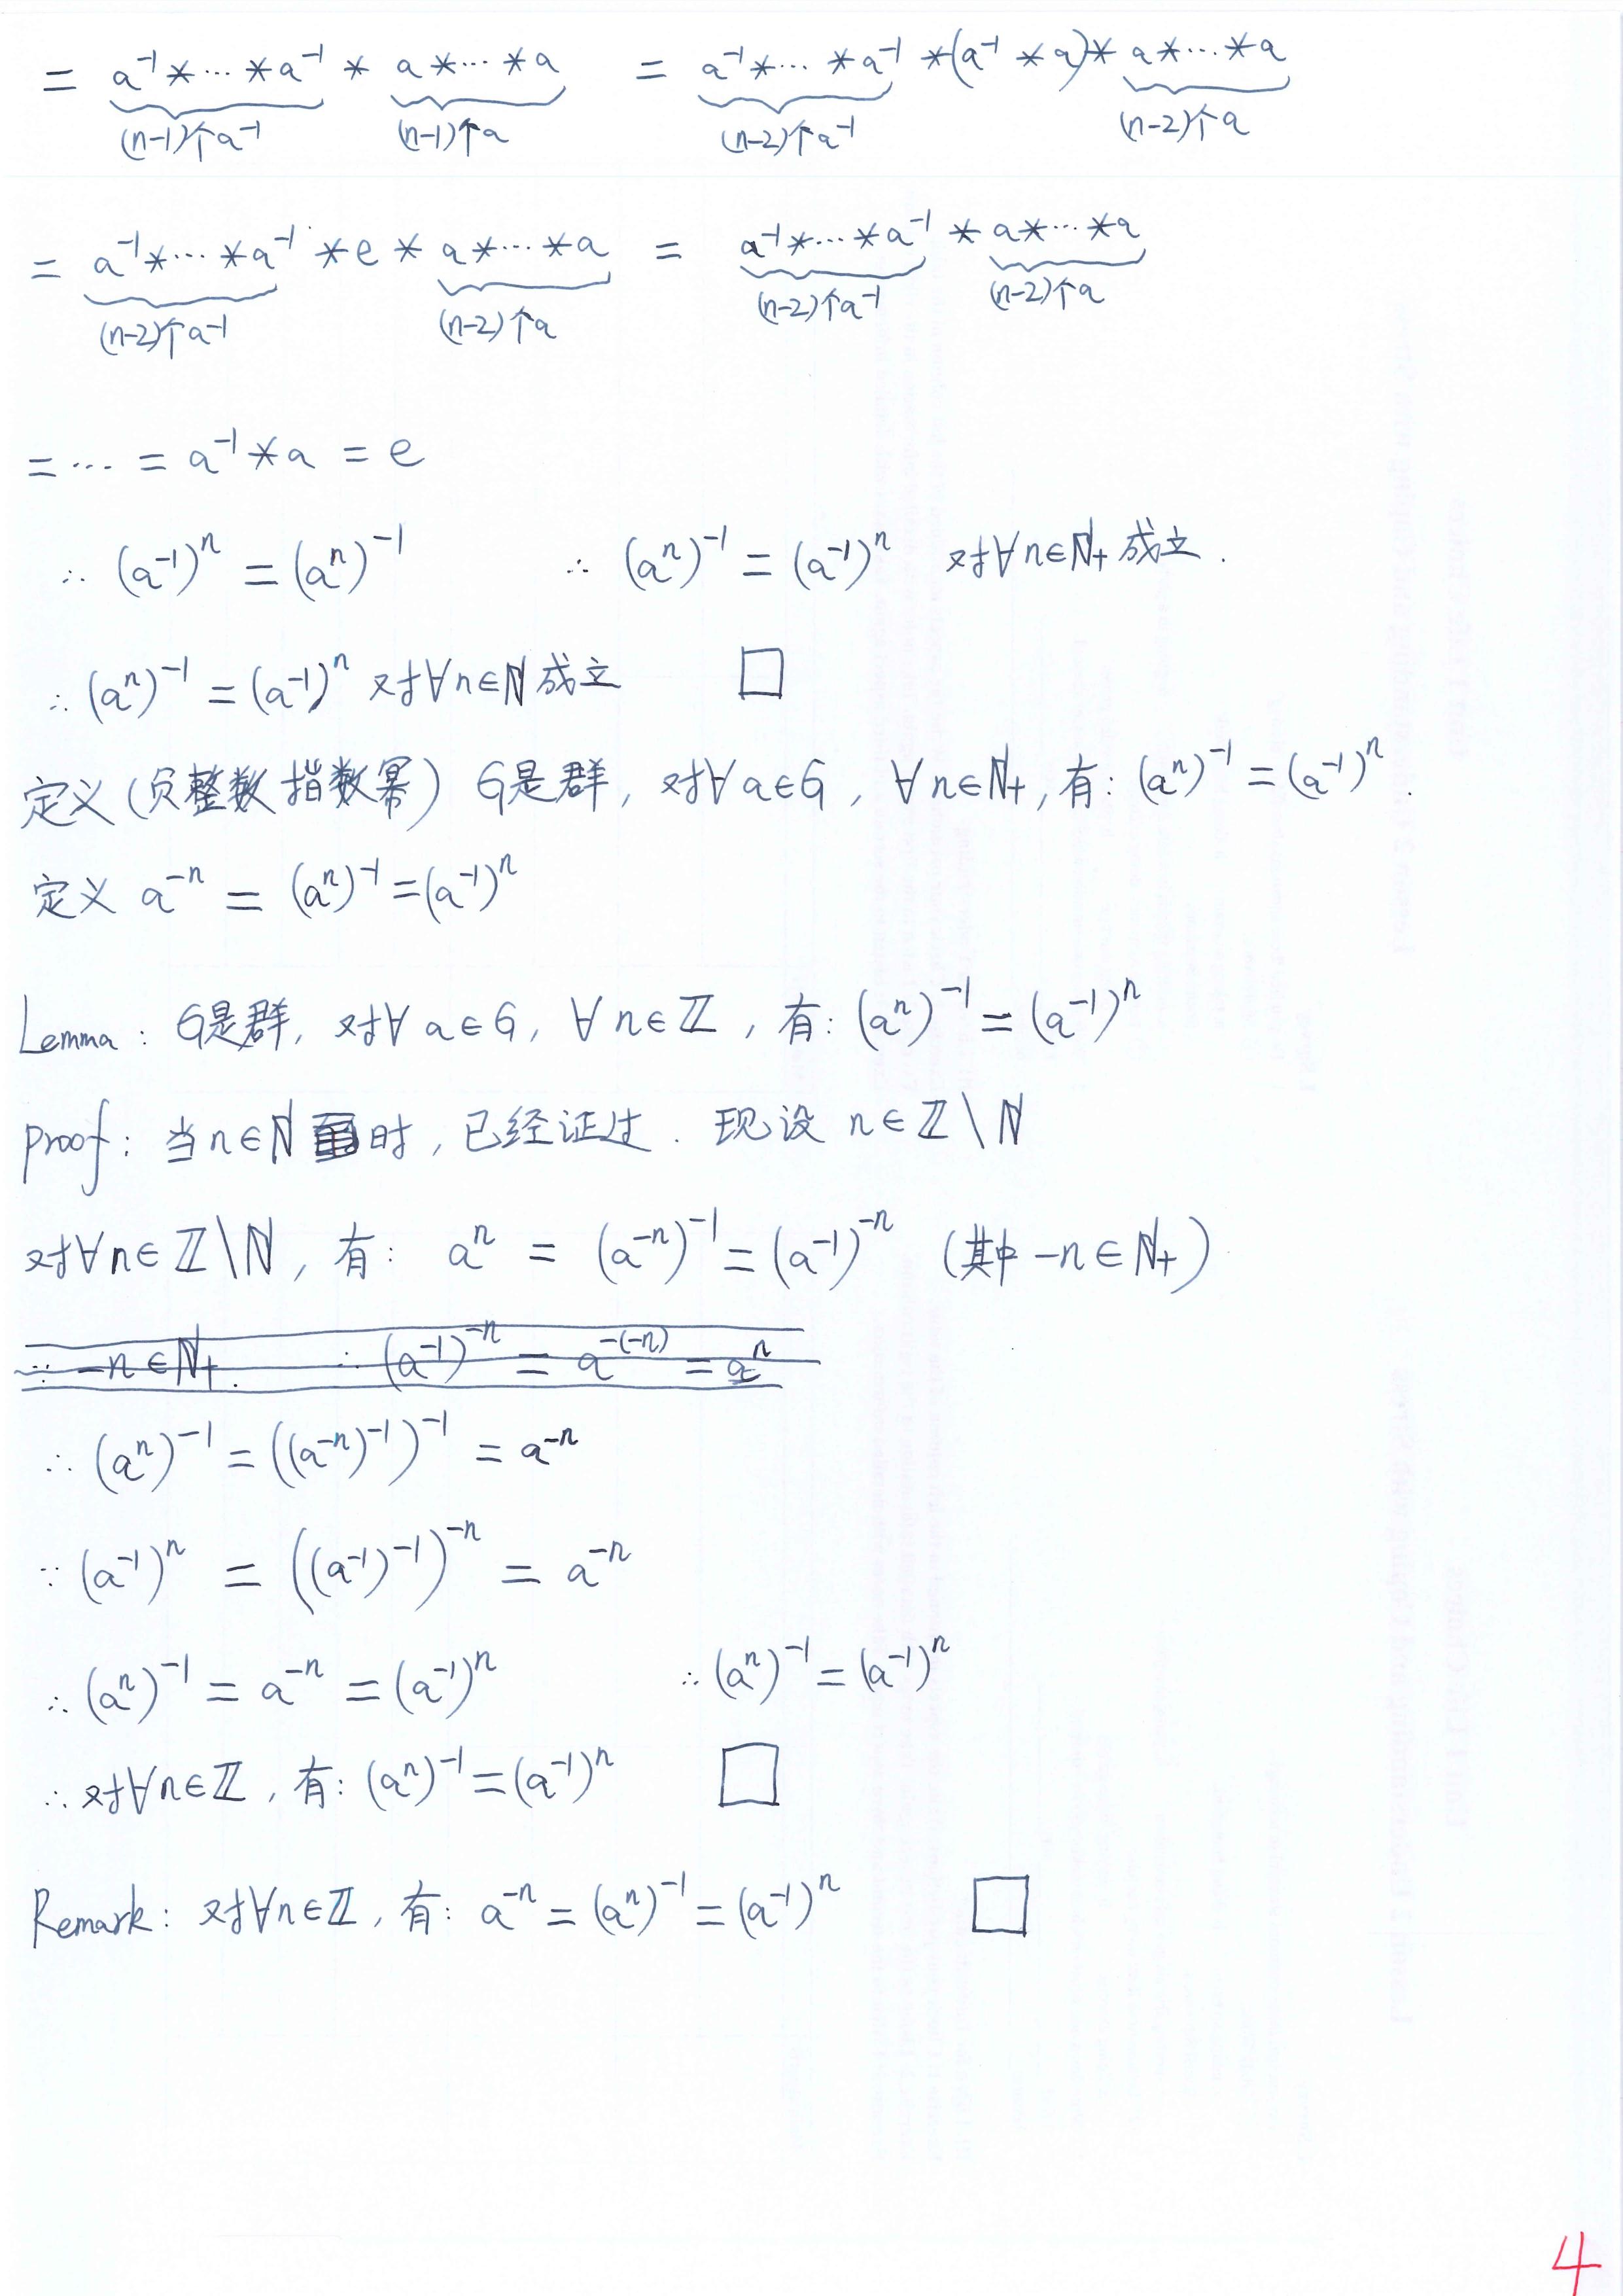 = a⁻¹*⋯*a⁻¹ * a*⋯*a = a⁻¹*⋯*a⁻¹ *(a⁻¹*a)* a*⋯*a
(n-1)个a⁻¹ (n-1)个a (n-2)个a⁻¹ (n-2)个a
= a⁻¹*⋯*a⁻¹ * e * a*⋯*a = a⁻¹*⋯*a⁻¹ * a*⋯*a
(n-2)个a⁻¹ (n-2)个a (n-2)个a⁻¹ (n-2)个a
=⋯ = a⁻¹*a = e
∴ (a⁻¹)ⁿ = (aⁿ)⁻¹ ∴ (aⁿ)⁻¹ = (a⁻¹)ⁿ 对∀n∈ℕ₊成立.
∴ (aⁿ)⁻¹ = (a⁻¹)ⁿ 对∀n∈ℕ成立 □
定义(负整数指数幂) G是群, 对∀a∈G, ∀n∈ℕ₊, 有: (aⁿ)⁻¹ = (a⁻¹)ⁿ.
定义 a⁻ⁿ = (aⁿ)⁻¹ = (a⁻¹)ⁿ
Lemma: G是群, 对∀a∈G, ∀n∈ℤ, 有: (aⁿ)⁻¹ = (a⁻¹)ⁿ
proof: 当n∈ℕ时, 已经证过. 现设 n∈ℤ\ℕ
对∀n∈ℤ\ℕ, 有: aⁿ = (a⁻ⁿ)⁻¹ = (a⁻¹)⁻ⁿ (其中 -n∈ℕ₊)
∵ -n∈ℕ₊. ∴ (a⁻¹)⁻ⁿ = a⁻⁽⁻ⁿ⁾ = aⁿ
∴ (aⁿ)⁻¹ = ((a⁻ⁿ)⁻¹)⁻¹ = a⁻ⁿ
∵ (a⁻¹)ⁿ = ((a⁻¹)⁻¹)⁻ⁿ = a⁻ⁿ
∴ (aⁿ)⁻¹ = a⁻ⁿ = (a⁻¹)ⁿ ∴ (aⁿ)⁻¹ = (a⁻¹)ⁿ
∴ 对∀n∈ℤ, 有: (aⁿ)⁻¹ = (a⁻¹)ⁿ □
Remark: 对∀n∈ℤ, 有: a⁻ⁿ = (aⁿ)⁻¹ = (a⁻¹)ⁿ □
4